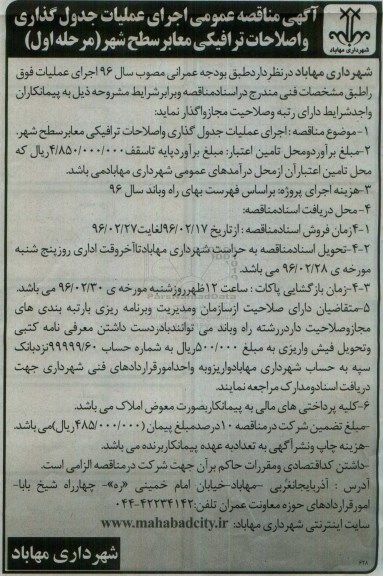 آگهی مناقصه عمومی اجرای عملیات جدول گذاری
واصلاحات ترافیکی معابر سطح شهر (مرحله اول)
شهرداری مهاباد
شهرداری مهاباد درنظردارد طبق بودجه عمرانی مصوب سال ۹۶ اجرای عملیات فوق
راطبق مشخصات فنی مندرج دراسناد مناقصه وبرابرشرایط مشروحه ذیل به پیمانکاران
واجدشرایط دارای رتبه وصلاحیت مجاز واگذار نماید.
۱-موضوع مناقصه: اجرای عملیات جدول گذاری واصلاحات ترافیکی معابر سطح شهر.
۲-مبلغ برآورد ومحل تامین اعتبار: مبلغ برآوردپایه تاسقف ۴/۸۵۰/۰۰۰/۰۰۰ ریال که
محل تامین اعتبارآن ازمحل درآمدهای عمومی شهرداری مهابادمی باشد.
۳-هزینه اجرای پروژه: براساس فهرست بهای راه وباند سال ۹۶
۴-محل دریافت اسناد مناقصه:
۴-۱زمان فروش اسناد مناقصه: ازتاریخ ۹۶/۰۲/۱۷ لغایت ۹۶/۰۲/۲۷
۴-۲-تحویل اسناد مناقصه به حراست شهرداری مهاباد تا آخروقت اداری روز پنج شنبه
مورخه ی ۹۶/۰۲/۲۸ می باشد.
۴-۳-زمان بازگشایی پاکات: ساعت ۱۲ ظهر روزشنبه مورخه ی ۹۶/۰۲/۳۰ می باشد.
۵-متقاضیان دارای صلاحیت ازسازمان ومدیریت وبرنامه ریزی بارتبه بندی های
مجاز وصلاحیت دار دررشته راه وباند می توانندبادردست داشتن معرفی نامه کتبی
وتحویل فیش واریزی به مبلغ ۵۰۰/۰۰۰ ریال به شماره حساب ۹۹۹۹۹/۶۰ نزدبانک
سپه به حساب شهرداری مهاباد واریز وبه واحد امورقراردادهای فنی شهرداری جهت
دریافت اسناد ومدارک مراجعه نمایند.
۶-کلیه پرداختی های مالی به پیمانکار بصورت معوض املاک می باشد.
-مبلغ تضمین شرکت درمناقصه ۱۰ درصدمبلغ پیمان (۴۸۵/۰۰۰/۰۰۰ ریال) می باشد.
-هزینه چاپ ونشرآگهی به تعدادبه عهده پیمانکاربرنده می باشد.
-داشتن کداقتصادی ومقررات حاکم برآن جهت شرکت درمناقصه الزامی است.
آدرس : آذربایجانغربی -مهاباد-خیابان امام خمینی «ره»- چهارراه شیخ بابا-
امورقراردادهای حوزه معاونت عمران تلفن: ۰۴۴-۴۲۲۳۴۱۴۲
سایت اینترنتی شهرداری مهاباد: www.mahabadcity.ir
شهرداری مهاباد
۶۲۸